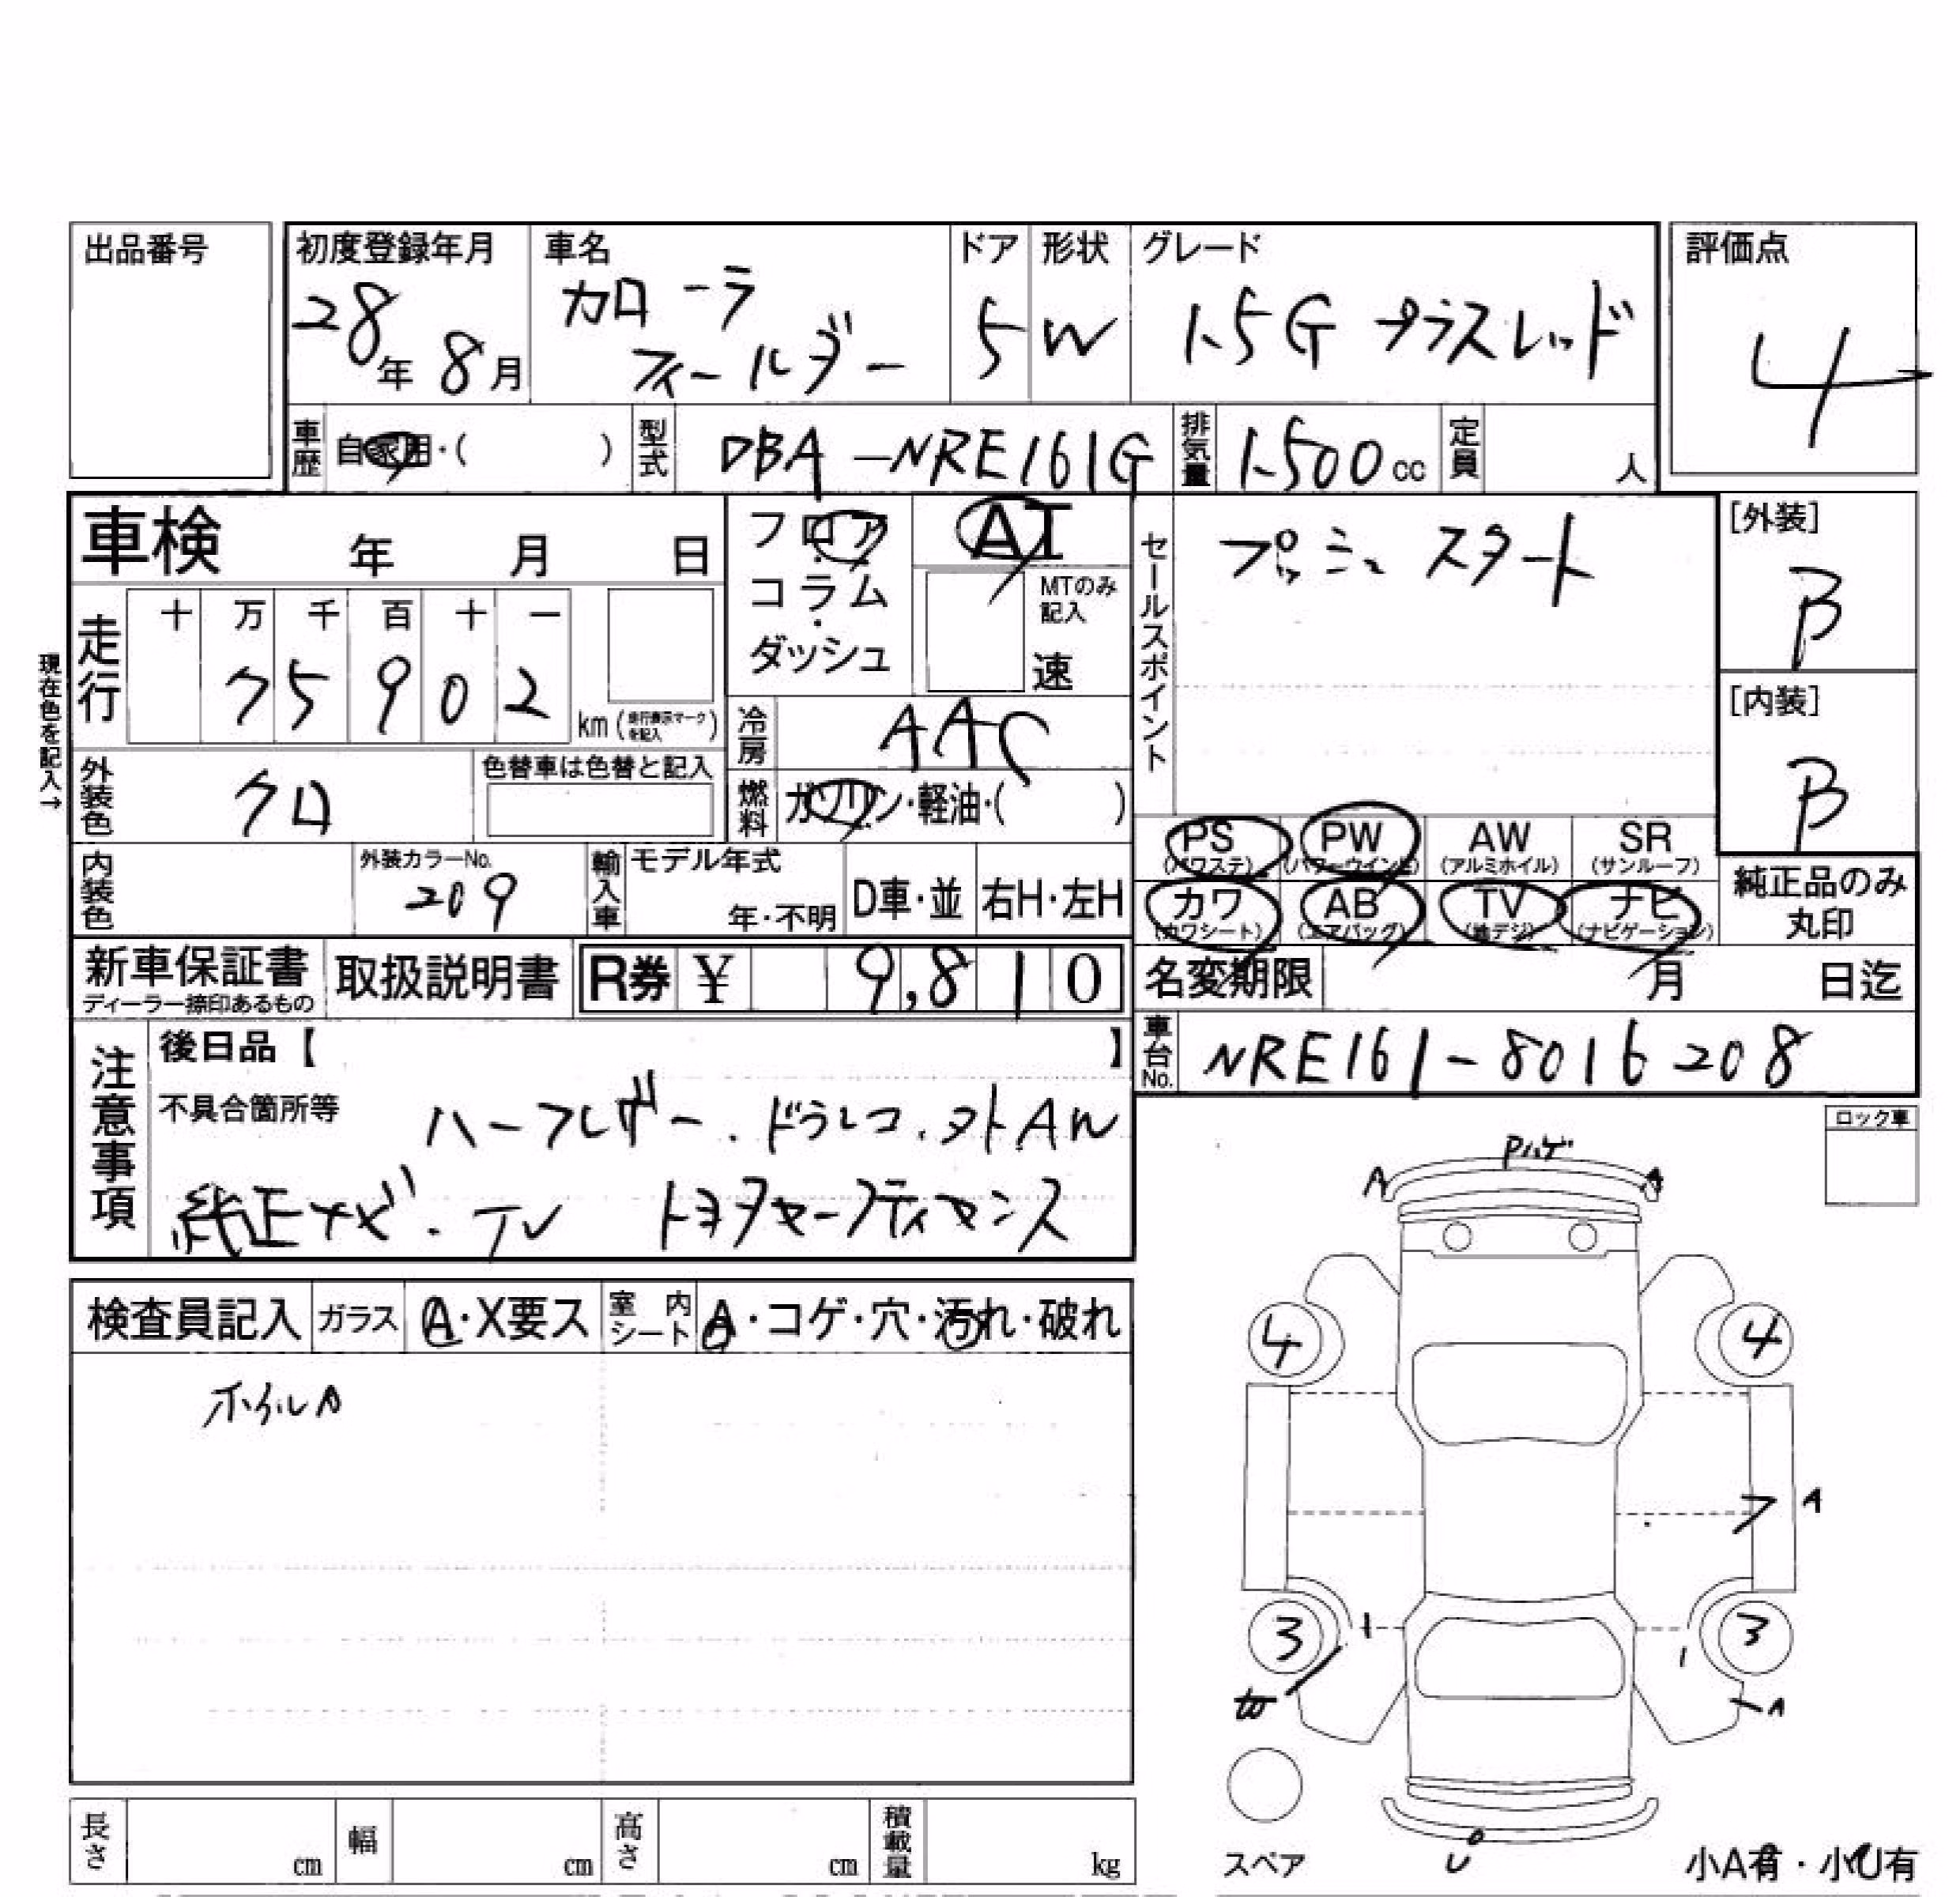 出品番号
初度登録年月 車名 ドア 形状 グレード 評価点
28年 8月 カローラ フィールダー 5 W 1.5G プラスレッド 4
車歴 自家用・( ) 型式 DBA-NRE161G 排気量 1500cc 定員 人
車検 年 月 日
フロア・コラム・ダッシュ
AT
MTのみ記入
速
セールスポイント
プッシュスタート
[外装]
B
[内装]
B
現在色を記入→
走行 十 万 千 百 十 一
75902 km (走行表示マークを記入)
冷房 AAC
外装色 クロ 色替車は色替と記入
燃料 ガソリン・軽油・( )
PS (パワステ) PW (パワーウインド) AW (アルミホイル) SR (サンルーフ)
カワ (カワシート) AB (エアバッグ) TV (地デジ) ナビ (ナビゲーション)
純正品のみ丸印
内装色 外装カラーNo. 209 輸入車 モデル年式 年・不明 D車・並 右H・左H
新車保証書 ディーラー捺印あるもの 取扱説明書 R券 ¥ 9,810
名変期限 月 日迄
車台No. NRE161-8016208
注意事項
後日品【 】
不具合箇所等 ハーフレザー.ドラレコ.外AW
純正ナビ.TV トヨタセーフティセンス
ロック車
検査員記入 ガラス A・X要ス 室内シート A・コゲ・穴・汚れ・破れ
ホイルA
Pハゲ
A A
4 4
A
3 3
A
U
スペア
小A有・小U有
長さ cm 幅 cm 高さ cm 積載量 kg